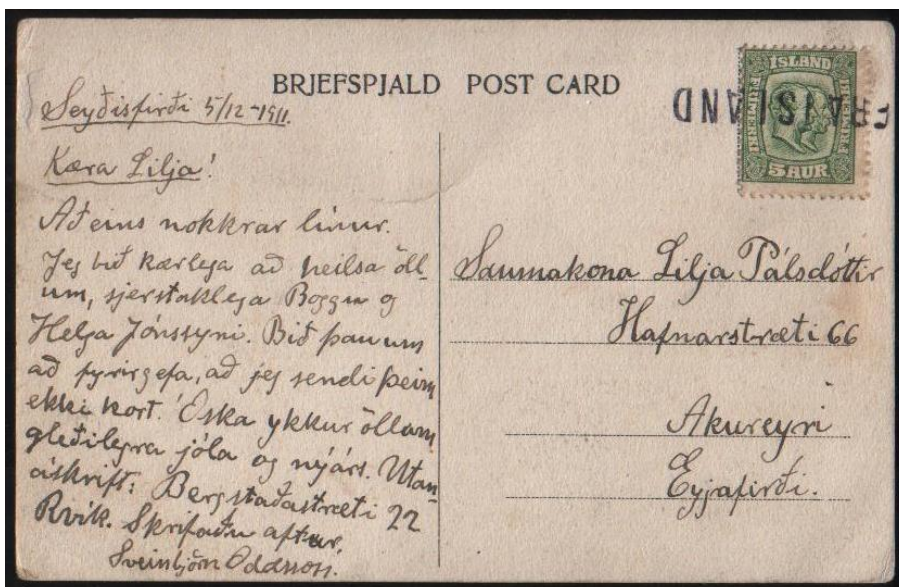 BRJEFSPJALD POST CARD
Seyðisfirði 5/12-1911.
Kæra Lilja!
Að eins nokkrar línur.
Jeg bið kærlega að heilsa öll-
um, sjerstaklega Boggu og
Helga Jónssyni. Bið þau um
að fyrirgefa, að jeg sendi þeim
ekki kort. Óska ykkur öllum
gleðilegra jóla og nýárs. Utan-
áskrift: Bergstaðastræti 22
Rvík. Skrifaðu aftur.
Sveinbjörn Oddsson.
ÍSLAND
FRÍMERKI
FRÍMERKI
5 AUR
FRA ISLAND
Saumakona Lilja Pálsdóttir
Hafnarstræti 66
Akureyri
Eyjafirði.